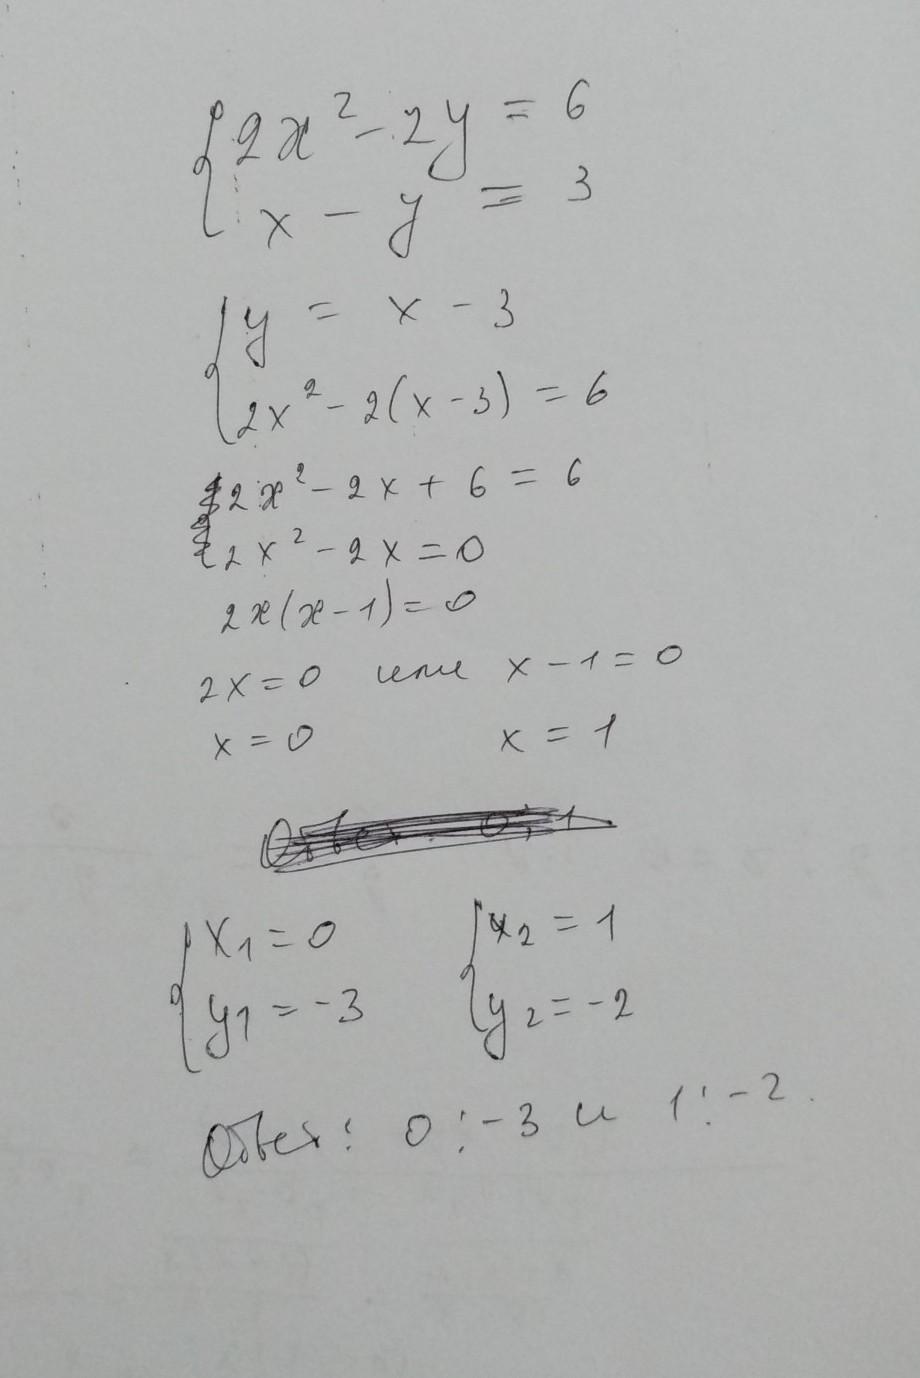 2x² - 2y = 6
x - y = 3
y = x - 3
2x² - 2(x - 3) = 6
2x² - 2x + 6 = 6
2x² - 2x = 0
2x(x - 1) = 0
2x = 0 или x - 1 = 0
x = 0 x = 1
Ответ: 0; 1
x₁ = 0 x₂ = 1
y₁ = -3 y₂ = -2
Ответ: 0; -3 и 1; -2.